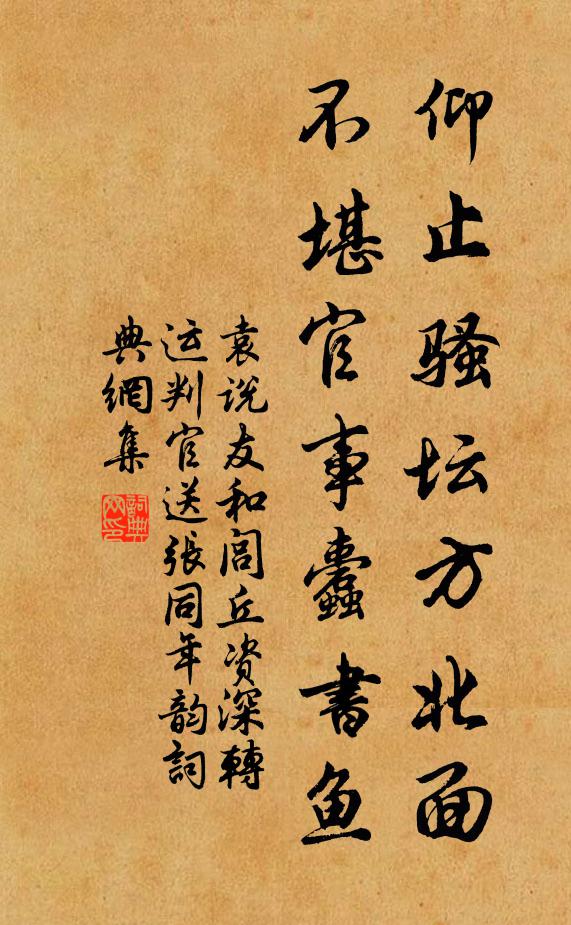 仰止骚坛方北面
不堪官事蠹书鱼
袁说友和闾丘资深轉
运判官送张同年韵詞
典網集
詞典網印